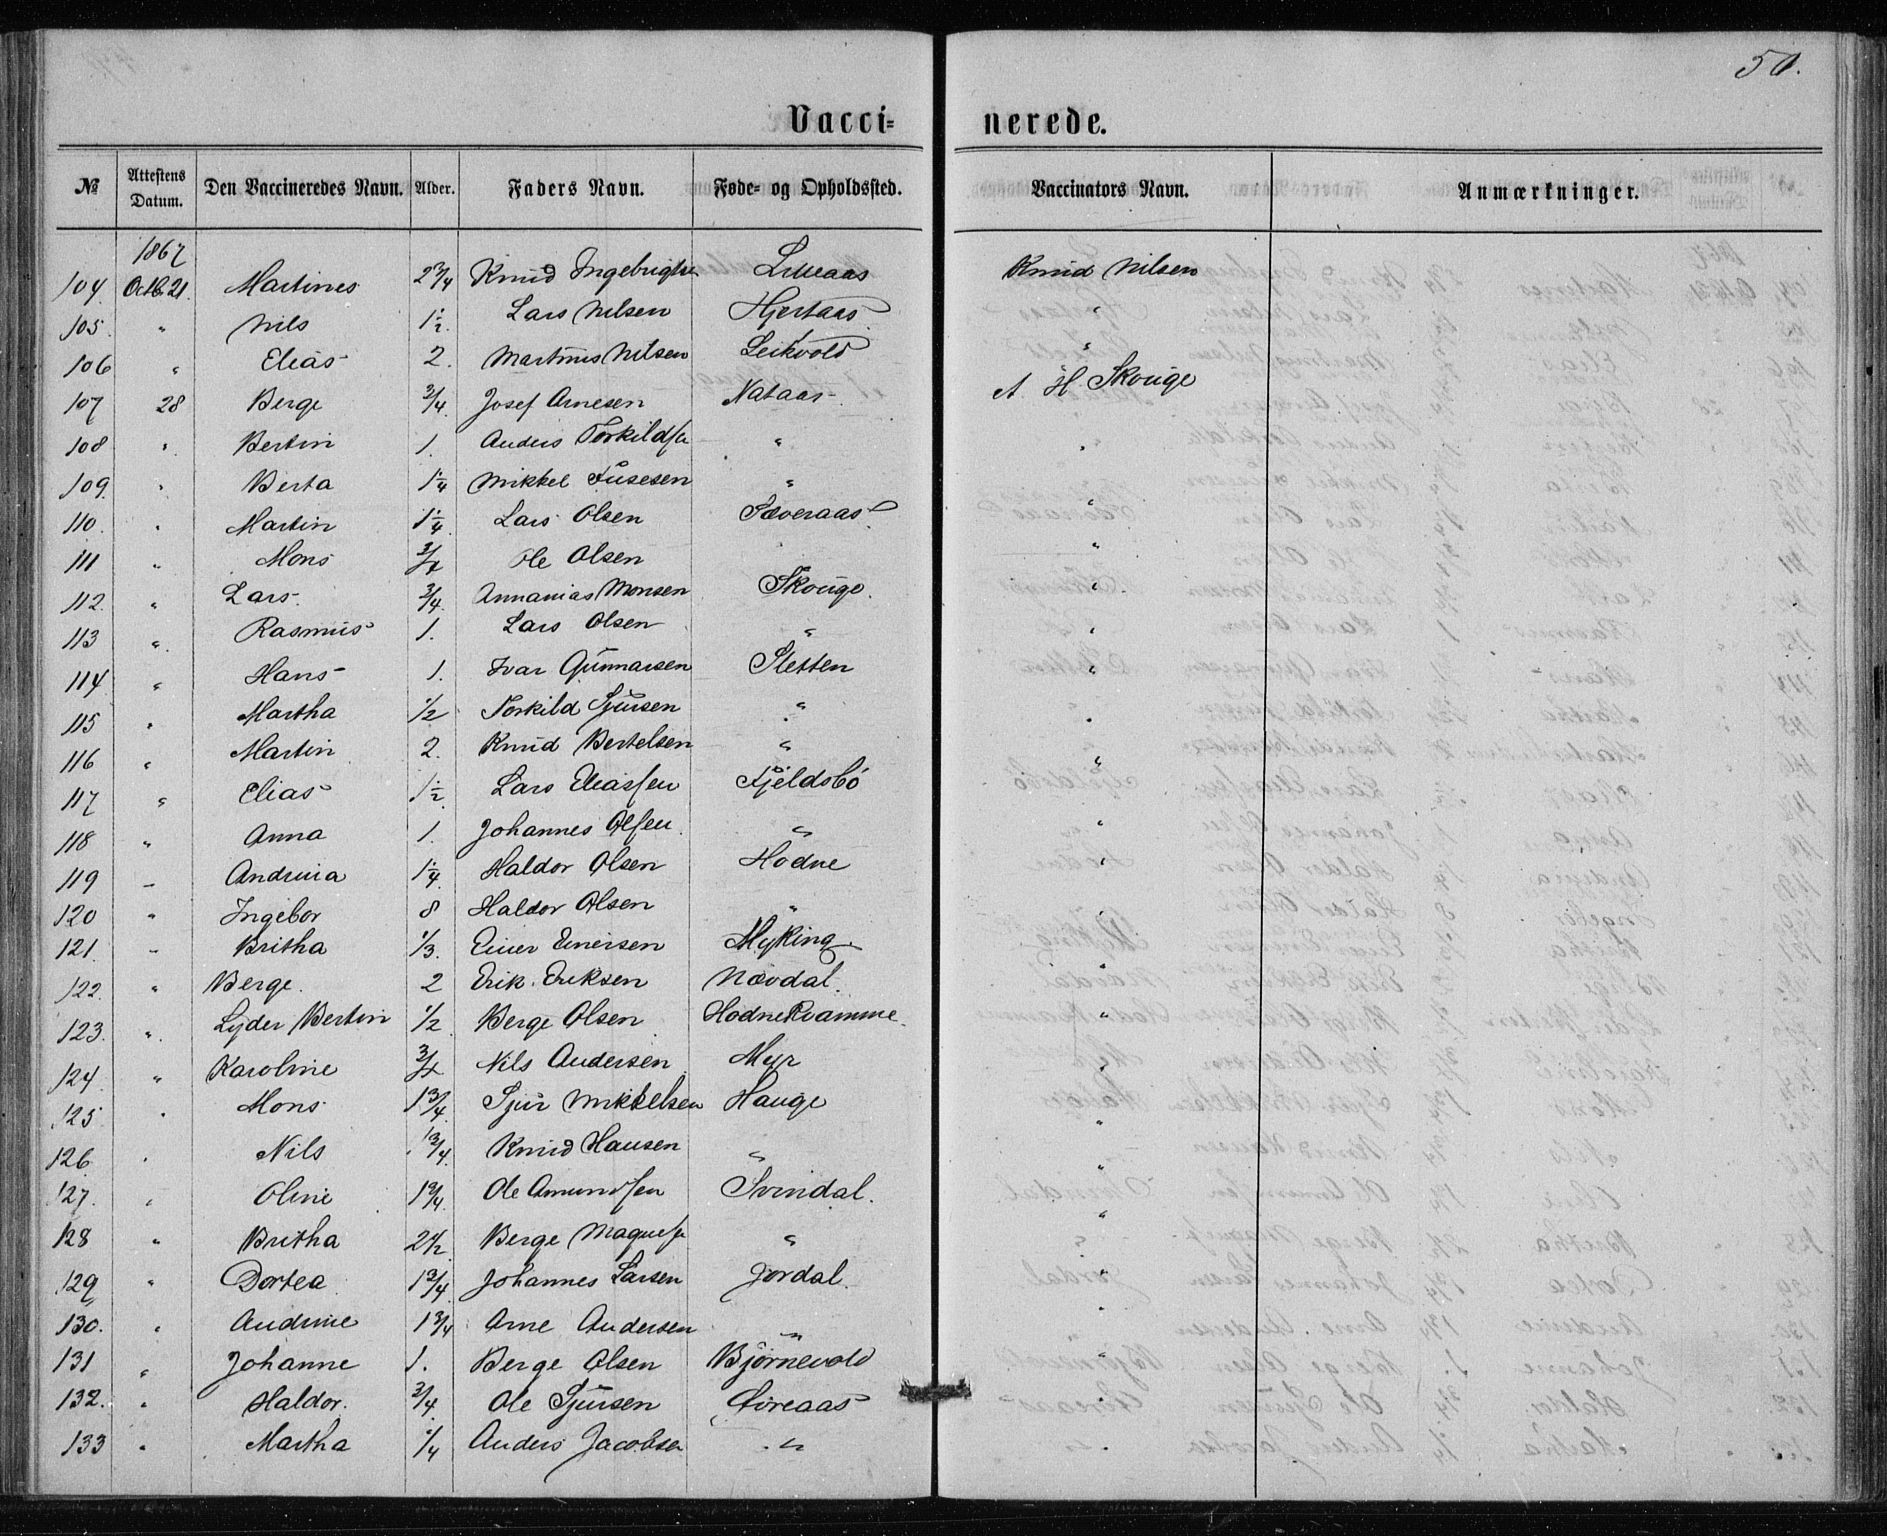 50.
Vacci= nerede.
№ Attestens Datum. Den Vaccineredes Navn. Alder. Faders Navn. Føde= og Opholdssted. Vaccinators Navn. Anmærkninger.
1867
104 Octb. 21. Martines 2 3/4 Knud Ingebrigtsen Lilleaas Knud Nilsen
105. " Nils 1 1/2. Lars Nilsen Hjertaas "
106 " Elias 2. Martinus Nilsen Leikvold "
107 28 Berge 3/4. Josef Arnesen Nataas A. H. Skouge
108 " Bertin 1. Anders Torkilds. " "
109. " Berta 1 1/4 Mikkel "
110. " Martin 1 1/4. Lars Olsen Sæveraas "
111 " Mons 3/4 Ole Olsen "
112. " Lars. 3/4. Annanias Monsen Skouge. "
113 " Rasmus 1. Lars Olsen " "
114 " Hans 1. Ivar Gunnarsen Sletten "
115 " Martha 1/2 Torkild Sjursen " "
116 " Martin 2. Knud Bertelsen " "
117 " Elias 1 1/2. Lars Eliassen Fjeldsbö
118 " Anna 1. Johannes Olsen. " "
119 " Andrina 1 1/4. Haldor Olsen Hodne "
120 " Ingebor 8 Haldor Olsen "
121. " Britha 1/3. Einer Einersen Myking "
122. " Berge. 2 Erik Eriksen Nævdal. "
123. " Lyder Bertin 1/2 Berge Olsen Hodne Kvamme. "
124. " Karoline 3/4 Nils Andersen Myr
125. " Mons 1 3/4. Sjur Mikkelsen Hauge "
126 " Nils 1 3/4. Knud Hansen " "
127. " Oline 1 3/4. Ole Amundsen Svindal. "
128 " Britha 2 1/2. Berge Magnes. "
129 " Dortea 1 3/4. Johannes Larsen Jordal. "
130. " Andrine 1 3/4 Arne Andersen " "
131 " Johanne 1. Berge Olsen Björnevold "
132. " Haldor. 3/4. Ole Sjursen "
133 " Martha 1/4 Anders Jacobsen " "